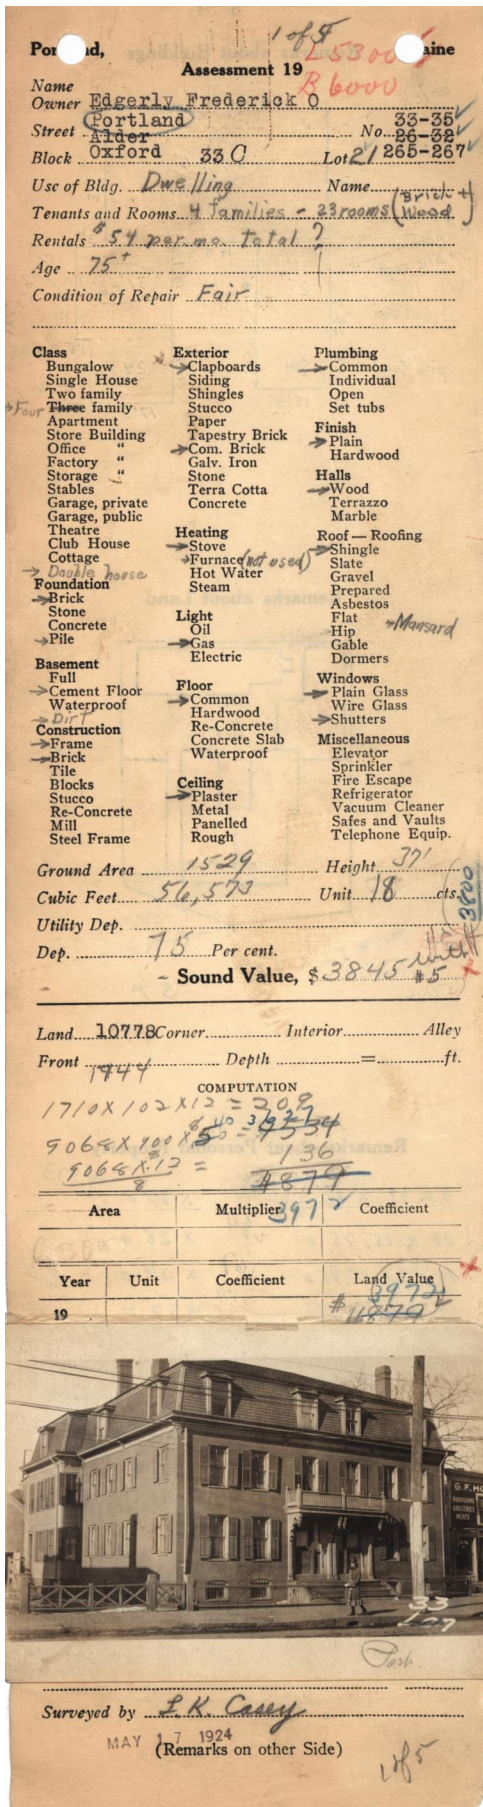 1 of 5
Portland, Maine
L 5300
B 6000
Assessment 19
Name
Owner Edgerly Frederick O
Portland 33-35
Street Alder No. 26-32
Oxford 265-267
Block 33 C Lot 21
Use of Bldg. Dwelling Name (Brick +
Tenants and Rooms 4 families - 23 rooms Wood)
Rentals $54 per mo. total ?
Age 75+
Condition of Repair Fair
Class
Bungalow
Single House
Two family
Four Three family
Apartment
Store Building
Office "
Factory "
Storage "
Stables
Garage, private
Garage, public
Theatre
Club House
Cottage
Double house
Foundation
Brick
Stone
Concrete
Pile
Basement
Full
Cement Floor
Waterproof
Dirt
Construction
Frame
Brick
Tile
Blocks
Stucco
Re-Concrete
Mill
Steel Frame
Exterior
Clapboards
Siding
Shingles
Stucco
Paper
Tapestry Brick
Com. Brick
Galv. Iron
Stone
Terra Cotta
Concrete
Heating
Stove
Furnace (not used)
Hot Water
Steam
Light
Oil
Gas
Electric
Floor
Common
Hardwood
Re-Concrete
Concrete Slab
Waterproof
Ceiling
Plaster
Metal
Panelled
Rough
Plumbing
Common
Individual
Open
Set tubs
Finish
Plain
Hardwood
Halls
Wood
Terrazzo
Marble
Roof — Roofing
Shingle
Slate
Gravel
Prepared
Asbestos
Flat
Hip Mansard
Gable
Dormers
Windows
Plain Glass
Wire Glass
Shutters
Miscellaneous
Elevator
Sprinkler
Fire Escape
Refrigerator
Vacuum Cleaner
Safes and Vaults
Telephone Equip.
Ground Area 1529 Height 37'
Cubic Feet 56,573 Unit 18 cts.
3800
Utility Dep.
Dep. 75 Per cent. with
- Sound Value, $3845 #5
Land 10778 Corner Interior Alley
Front 1944 Depth = ft.
COMPUTATION
1710 X 102 X 12 = 209
9068 X 100 X 50 = 4534
40 3627
9068 X 12 = 136
8
4879
Area Multiplier Coefficient
3972
Year Unit Coefficient Land Value
3972
19 $ 4879
G.F. HO
PROVISIONS
GROCERIES
MEATS
33
Port.
Surveyed by L. K. Casey
MAY 17 1924
(Remarks on other Side)
1 of 5